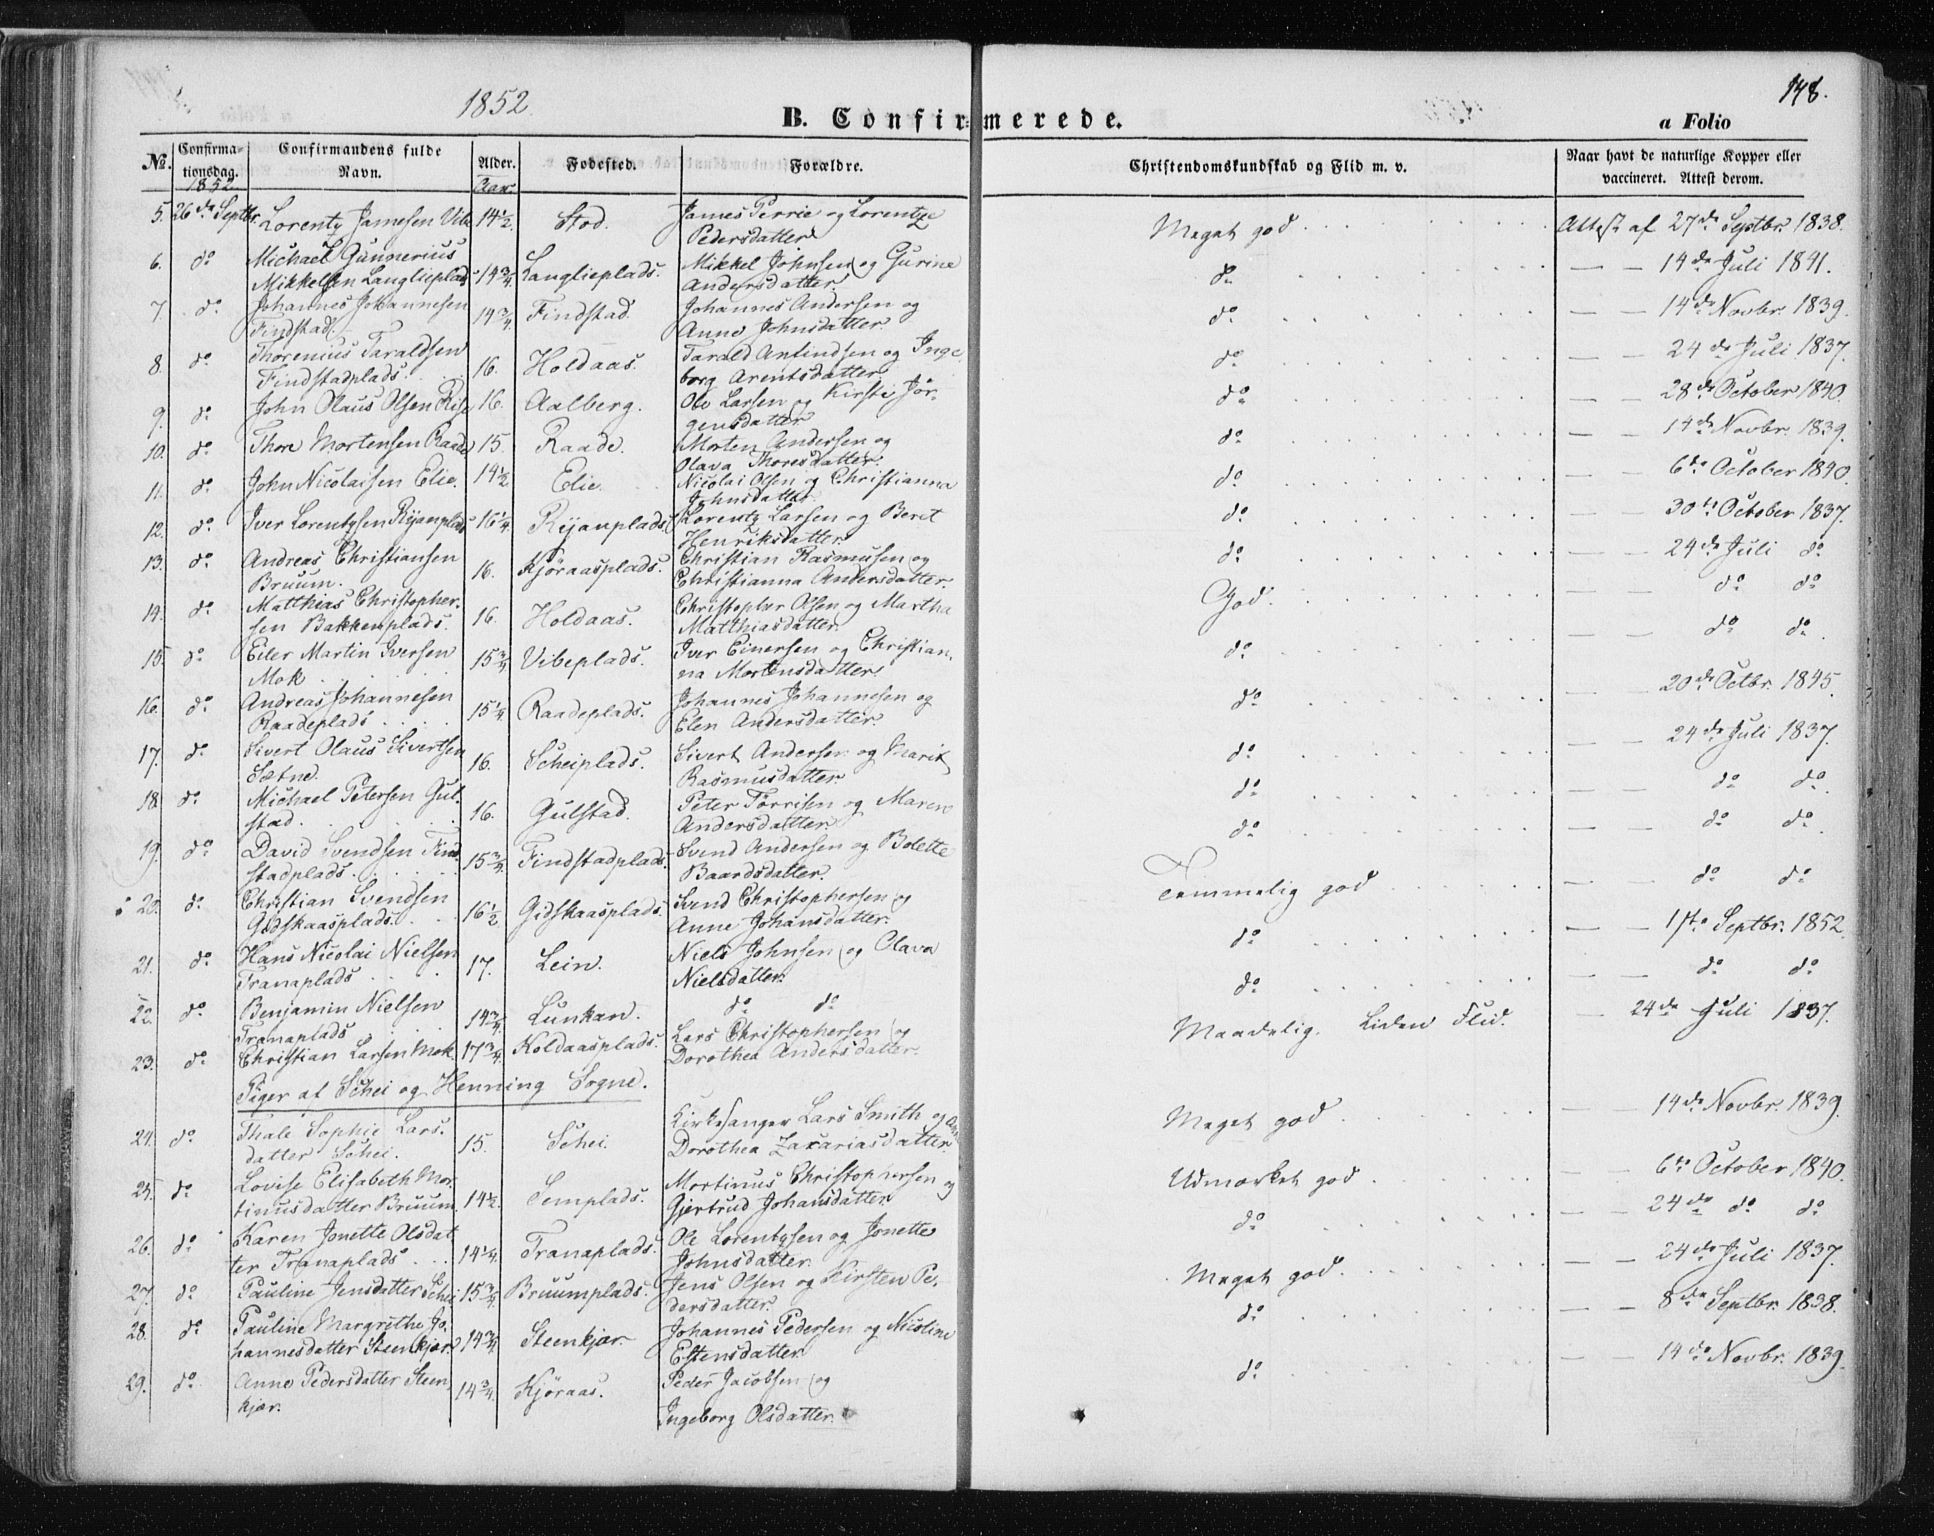 1852.
148.
B. Confirmerede.
a Folio
No. Confirmationsdag. Confirmandens fulde Navn. Alder. Fødested. Forældre. Christendomskundskab og Flid m. v. Naar havt de naturlige Kopper eller vaccineret. Attest derom.
1852. Aar.
5. 26de Septbr. Lorentz Jamesen Vibe 14 1/2. Stod. James Perrie og Lorentze
Pedersdatter. Meget god. Attest af 27de Septbr. 1838.
6. do Michael Gunnerius
Mikkelsen Langlieplads 14 3/4 Langlieplads. Mikkel Johnsen og Gurine
Andersdatter. do — — 14de Juli 1841.
7. do Johannes Johannesen
Findstad. 14 3/4. Findstad. Johannes Andersen og
Anne Johnsdatter do — — 14de Novbr. 1839.
8. do Thorenius Taraldsen
Findstadplads. 16. Holdaas. Tarald Anfindsen og Inge
borg Arentsdatter do — — 24de Juli 1837.
9. do John Olaus Olsen Rise 16. Aalberg. Ole Larsen og Kirsti Jør-
gensdatter do — — 28de October 1840.
10. do Thore Mortensen Raade 15. Raade. Morten Andersen og
Olava Thoresdatter. do — — 14de Novbr. 1839.
11. do John Nicolaisen Elie. 14 1/2 Elie. Nicolai Olsen og Christianna
Johnsdatter do — — 6te October 1840.
12. do Iver Lorentzsen Rijanplads 16 1/4 Rijanplads. Lorentz Larsen og Beret
Henriksdatter. do — — 30te October 1837.
13. do Andreas Christiansen
Bruum. 16. Kjøraasplads. Christian Rasmusen og
Christianna Andersdatter. do — — 24de Juli do
14. do Matthias Christopher-
sen Bakkenplads. 16. Holdaas. Christopher Olsen og Martha
Matthiasdatter. God. — — do do
15. do Eiler Martin Iversen
Mok 15 3/4 Vibeplads. Iver Einersen og Christian-
na Mortensdatter do — — do do.
16. do Andreas Johannesen
Raadeplads 15 1/4. Raadeplads. Johannes Johannesen og
Elen Andersdatter. do — — 20de Octbr. 1845.
17. do Sivert Olaus Sivertsen
Sætne. 16. Scheiplads. Sivert Andersen og Marit
Rasmusdatter. do — — 24de Juli 1837.
18. do Michael Petersen Gul-
stad. 16. Gulstad. Peter Tørrisen og Maren
Andersdatter. do — — do do.
19. do David Svendsen Find
stadplads. 15 3/4. Findstadplads. Svend Andersen og Bolette
Baardsdatter. do — — do do.
20. do Christian Svendsen
Gidskaasplads. 16 1/2 Gidskaasplads. Svend Christophersen og
Anne Johansdatter. Temmelig god — — do do.
21. do Hans Nicolai Nielsen
Tranaplads 17. Lein. Niels Johnsen og Olava
Nielsdatter. do — — 1ste Septbr. 1852.
22. do Benjamin Nielsen
Tranaplads 14 3/4. Lunkan. do do do — — do do.
23. do Christian Larsen Mok. 17 3/4. Holdaasplads. Lars Christophersen og
Dorothea Andersdatter. Maadelig. Liden Flid. — 24de Juli 1837.
Piger af Schei og Henning Sogne.
24. do Thale Sophie Lars-
datter Schei. 15. Schei. Kirkesanger Lars Smith og
Dorothea Zakariasdatter Meget god. — — 14de Novbr. 1839.
25. do Lovise Elisabeth Mor-
tinusdatter Bruum 14 1/2. Semplads. Mortinus Christophersen og
Gjertrud Johansdatter Udmærket god — — 6te October 1840.
26. do Karen Jonette Olsdat
ter Tranaplads 14 1/4. Tranaplads. Ole Lorentzsen og Jonette
Johnsdatter. do — — 24de do do.
27. do Pauline Jensdatter Schei 15 3/4 Bruumplads. Jens Olsen og Kirsten Pe-
dersdatter. Meget god. — — 24de Juli 1837.
28. do Pauline Margrethe Jo-
hannesdatter Steenkjær 14 3/4 Steenkjær. Johannes Pedersen og Nicoline
Estensdatter. do — — 8de Septbr. 1838.
29. do Anne Pedersdatter Steen
kjær. 14 3/4. Kjøraas. Peder Jacobsen og
Ingeborg Olsdatter. do — — 14de Novbr. 1839.